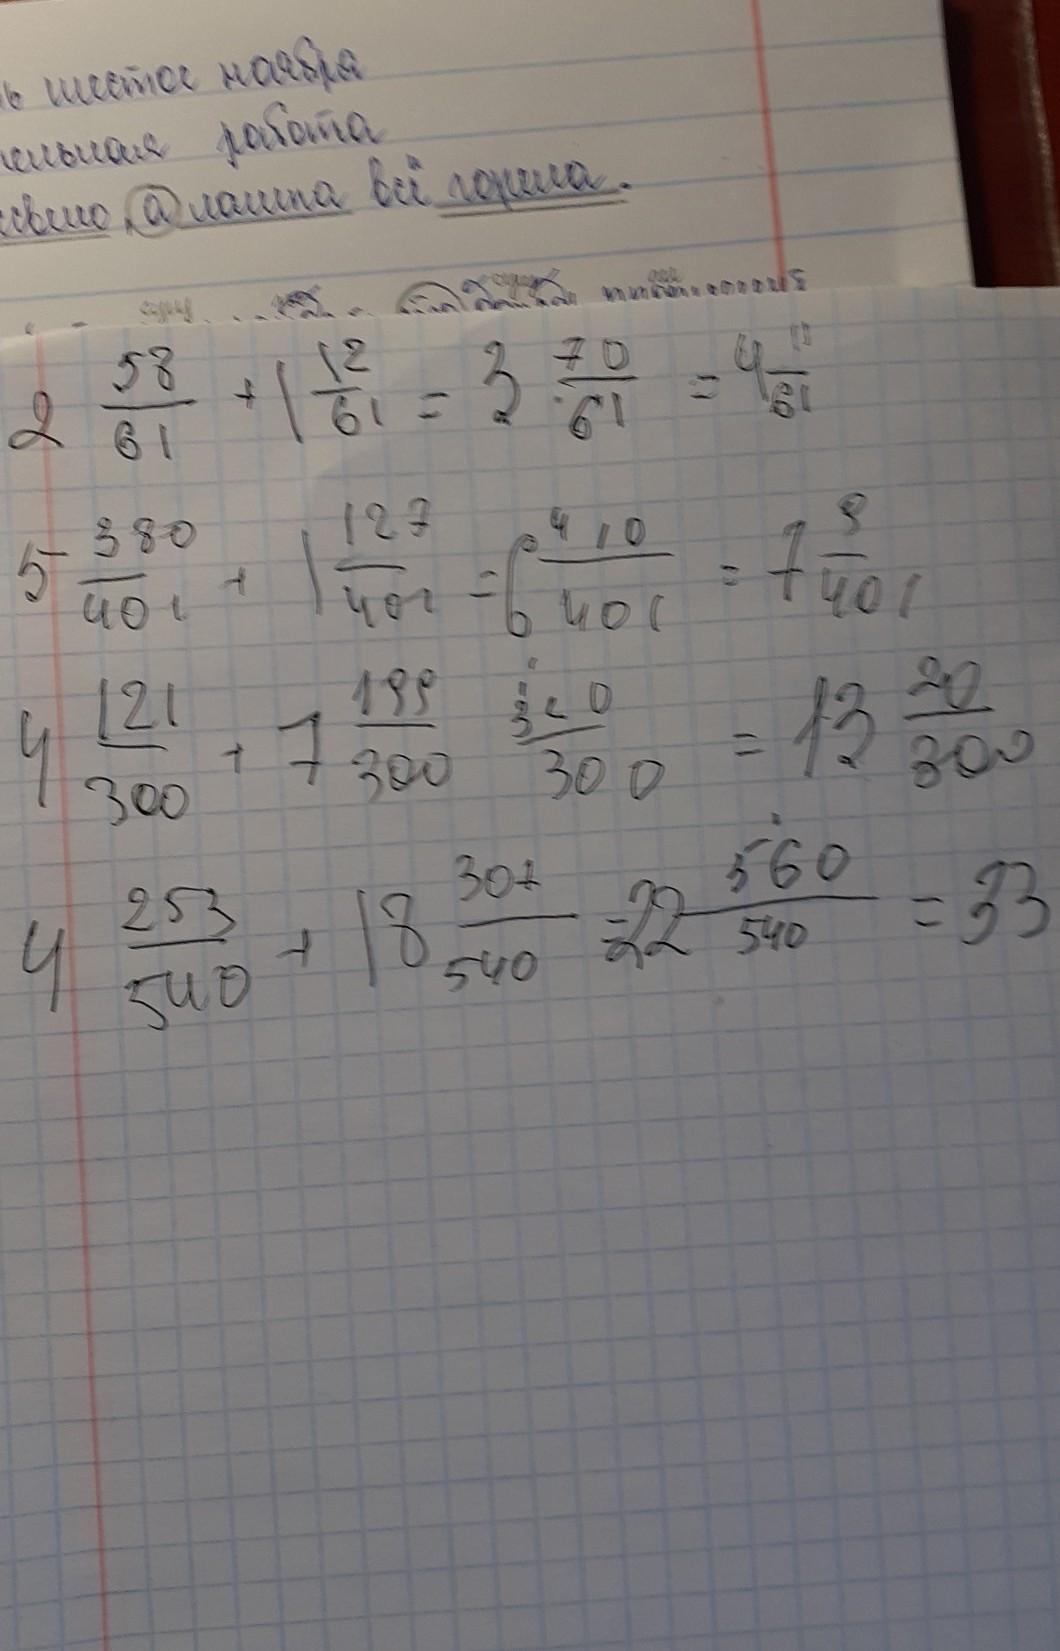 шестое ноября
работа
а лампа всё горела.
2 58/61 + 1 12/61 = 3 70/61 = 4 /61
5 380/401 + 1 127/401 = 6 410/401 = 7 9/401
4 121/300 + 7 199/300 320/300 = 13 20/300
4 253/540 + 18 307/540 = 22 560/540 = 33